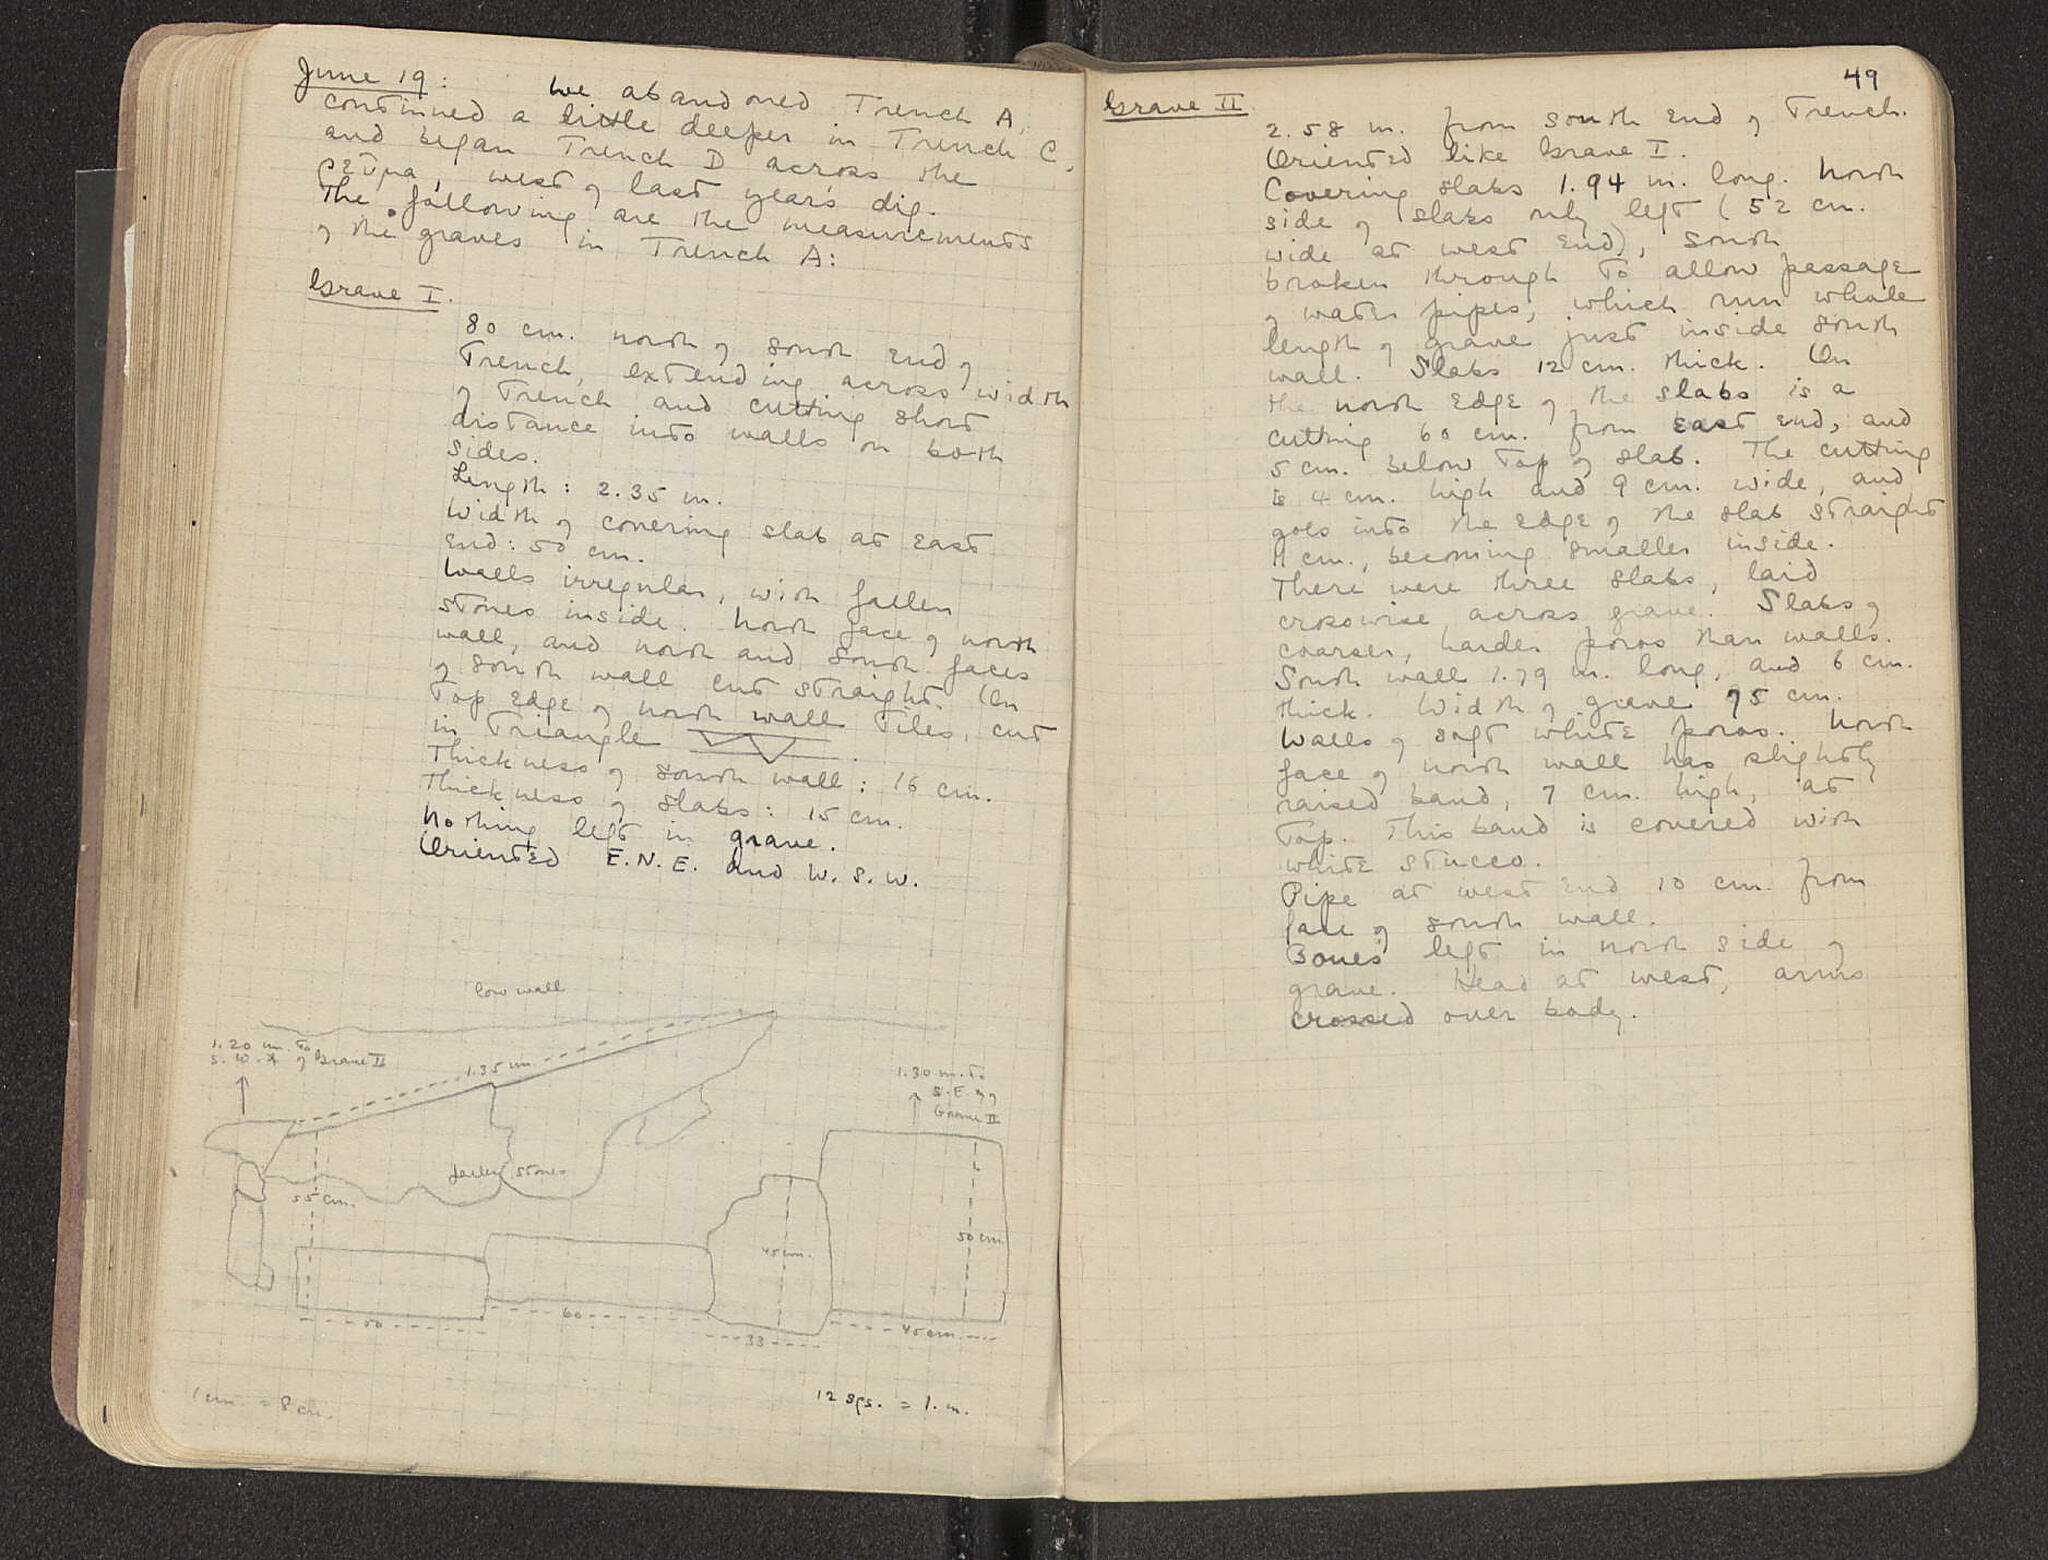 June 19: We abandoned Trench A,
continued a little deeper in Trench C,
and began Trench D across the
ρεῦμα, west of last year's dig.
The following are the measurements
of the graves in Trench A:
Grave I.
80 cm. north of south end of
Trench, extending across width
of Trench and cutting short
distance into walls on both
sides.
Length: 2.35 m.
Width of covering slab at east
end: 50 cm.
Walls irregular, with fallen
stones inside. North face of north
wall, and north and south faces
of south wall cut straight. On
top edge of north wall tiles, cut
in triangle
Thickness of south wall: 16 cm.
Thickness of slabs: 15 cm.
Nothing left in grave.
Oriented E.N.E. and W.S.W.
low wall
1.20 m. to
S.W. of Grave II
1.35 m.
1.30 m. to
S.E. of
Grave II
fallen stones
55 cm.
45 cm.
50 cm.
50
60
33
45 cm.
1 cm. = 8 cm.
12 sqs. = 1. m.
49
Grave II.
2.58 m. from south end of Trench.
Oriented like Grave I.
Covering slabs 1.94 m. long. North
side of slabs only left (52 cm.
wide at west end), south
broken through to allow passage
of water pipes, which run whole
length of grave just inside south
wall. Slabs 12 cm. thick. On
the north edge of the slabs is a
cutting 60 cm. from east end, and
5 cm. below top of slab. The cutting
is 4 cm. high and 9 cm. wide, and
goes into the edge of the slab straight
11 cm., becoming smaller inside.
There were three slabs, laid
crosswise across grave. Slabs of
coarser, harder poros than walls.
South wall 1.79 m. long, and 6 cm.
thick. Width of grave 75 cm.
Walls of soft white poros. North
face of north wall has slightly
raised band, 7 cm. high, at
top. This band is covered with
white stucco.
Pipe at west end 10 cm. from
face of south wall.
Bones left in north side of
grave. Head at west, arms
crossed over body.